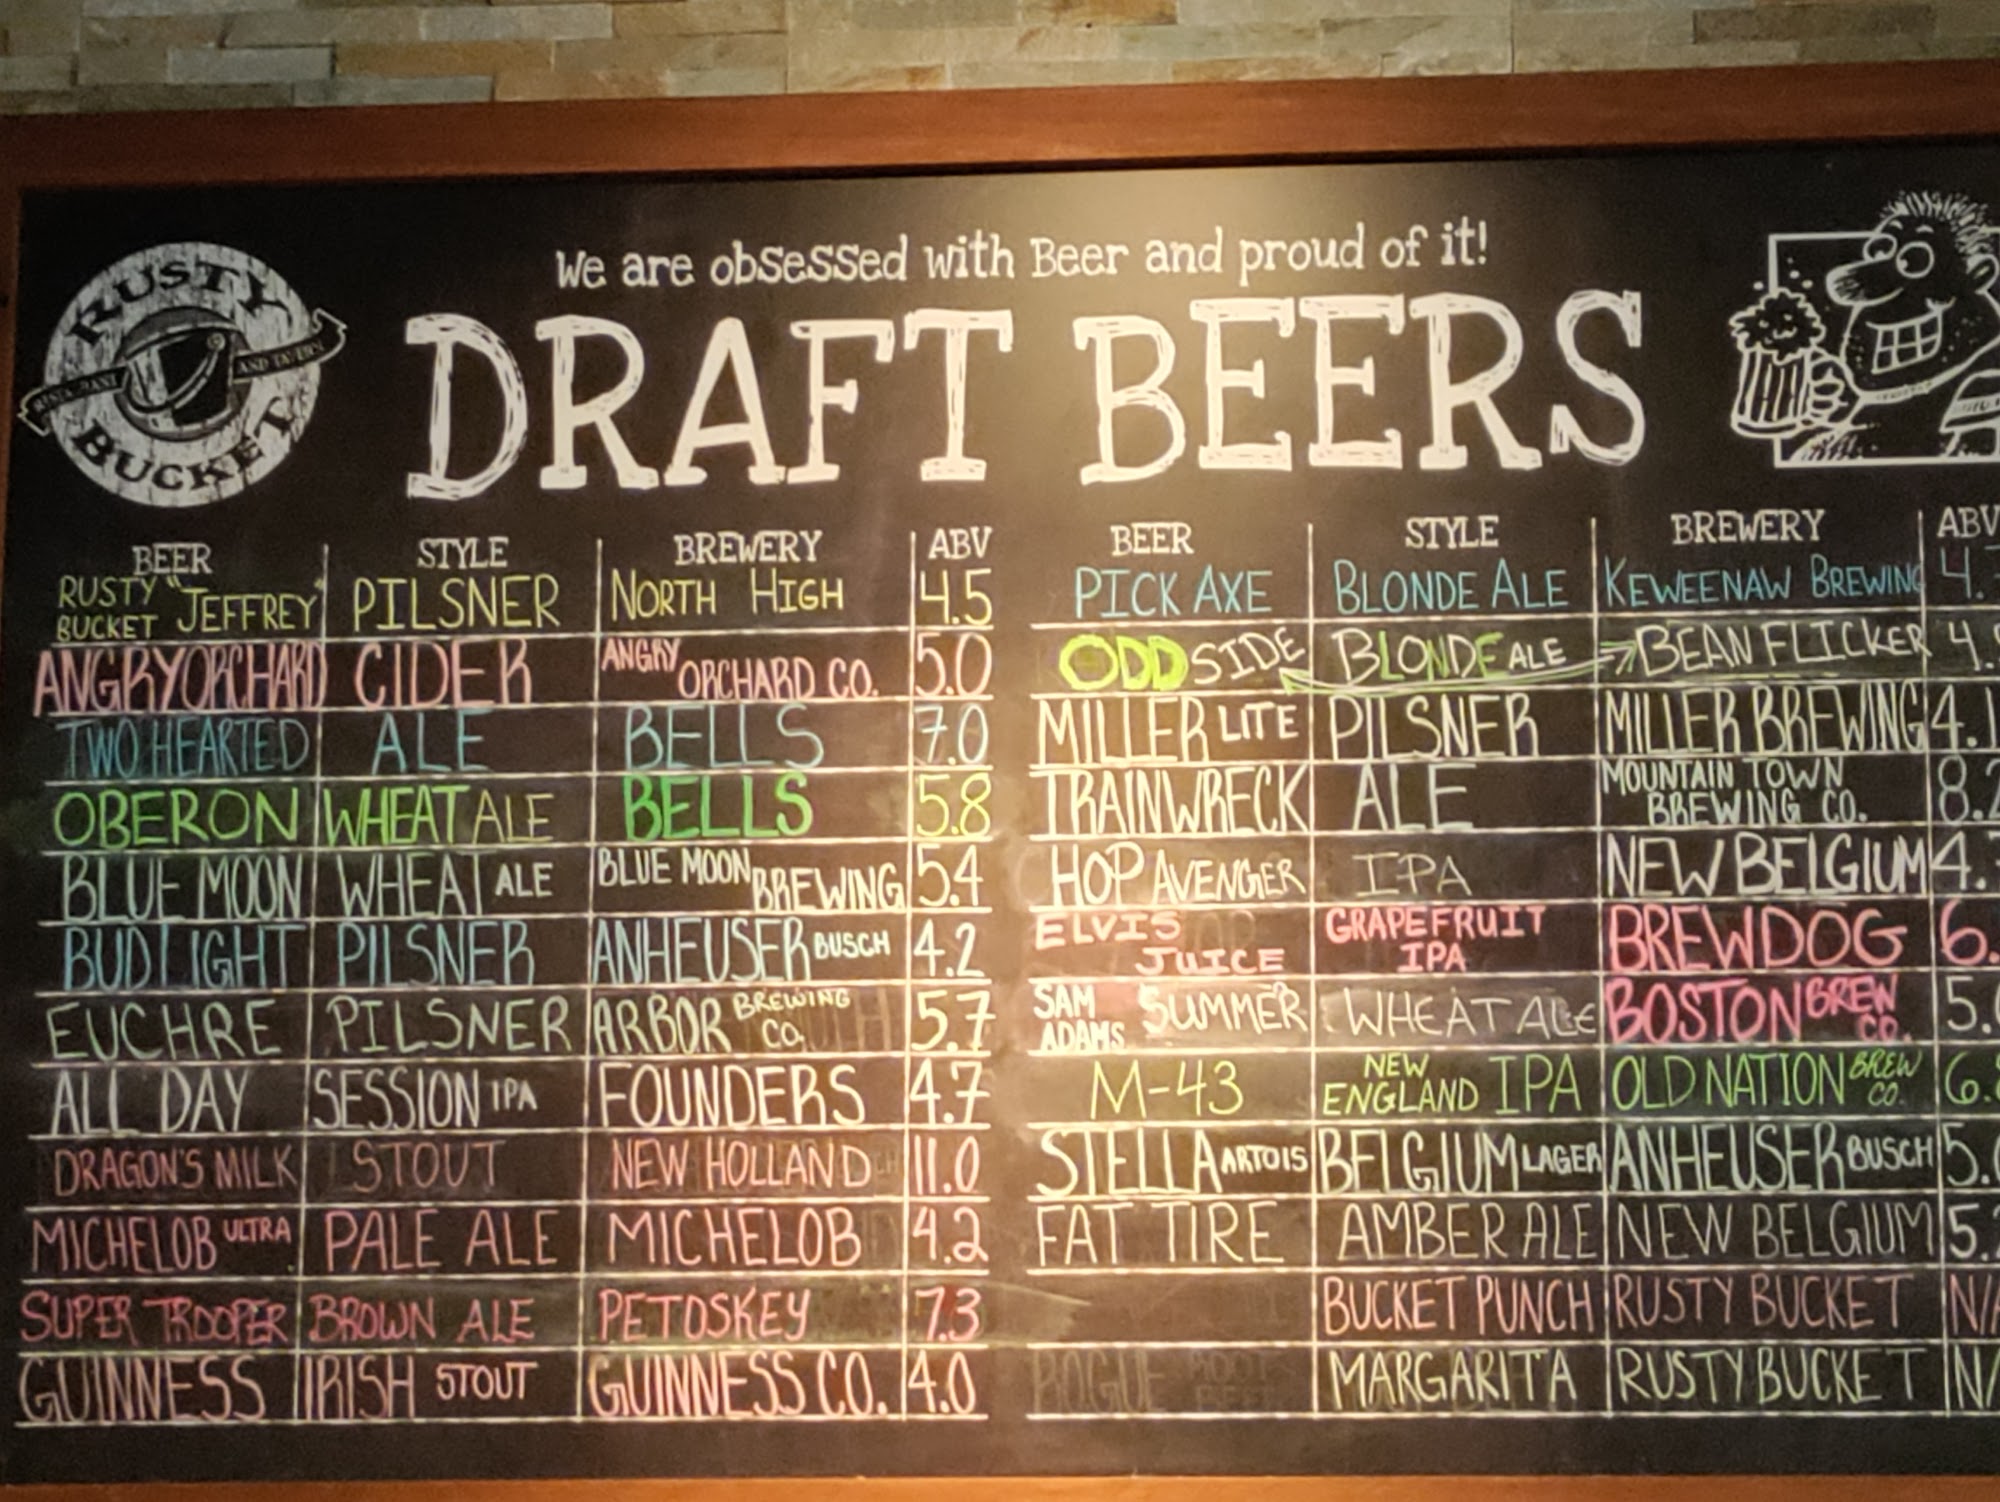 We are obsessed with Beer and proud of it!
DRAFT BEERS
RUSTY BUCKET
AND TAVERN
BEER STYLE BREWERY ABV
RUSTY BUCKET "JEFFREY" PILSNER NORTH HIGH 4.5
ANGRY ORCHARD CIDER ANGRY ORCHARD CO. 5.0
TWO HEARTED ALE BELLS 7.0
OBERON WHEAT ALE BELLS 5.8
BLUE MOON WHEAT ALE BLUE MOON BREWING 5.4
BUD LIGHT PILSNER ANHEUSER BUSCH 4.2
EUCHRE PILSNER ARBOR BREWING CO. 5.7
ALL DAY SESSION IPA FOUNDERS 4.7
DRAGON'S MILK STOUT NEW HOLLAND 11.0
MICHELOB ULTRA PALE ALE MICHELOB 4.2
SUPER TROOPER BROWN ALE PETOSKEY 7.3
GUINNESS IRISH STOUT GUINNESS CO. 4.0
BEER STYLE BREWERY ABV
PICK AXE BLONDE ALE KEWEENAW BREWING 4.
ODD SIDE BLONDE ALE BEAN FLICKER 4.
MILLER LITE PILSNER MILLER BREWING 4.1
TRAINWRECK ALE MOUNTAIN TOWN BREWING CO. 8.2
HOP AVENGER IPA NEW BELGIUM 4.
ELVIS JUICE GRAPEFRUIT IPA BREWDOG 6.
SAM ADAMS SUMMER WHEAT ALE BOSTON BREW CO. 5.
M-43 NEW ENGLAND IPA OLD NATION BREW CO. 6.
STELLA ARTOIS BELGIUM LAGER ANHEUSER BUSCH 5.
FAT TIRE AMBER ALE NEW BELGIUM 5.
BUCKET PUNCH RUSTY BUCKET N/
MARGARITA RUSTY BUCKET N/